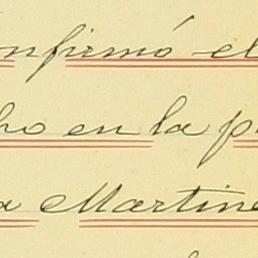 nfirmó el
ho en la p
a Martine